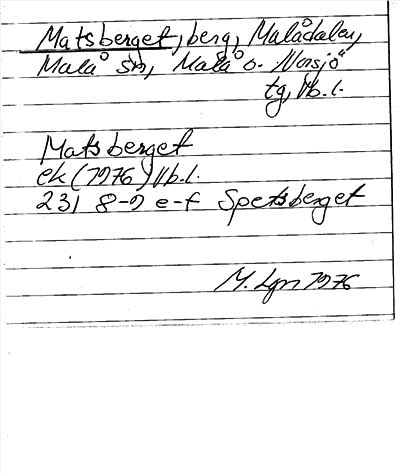 Matsberget, berg, Malådalen,
Malå sn, Malå o. Norsjö
tg, Vb. l.
Matsberget
ek (1976) Vb. l.
231 8-9 e-f Spetsberget
M. Lgn 1976